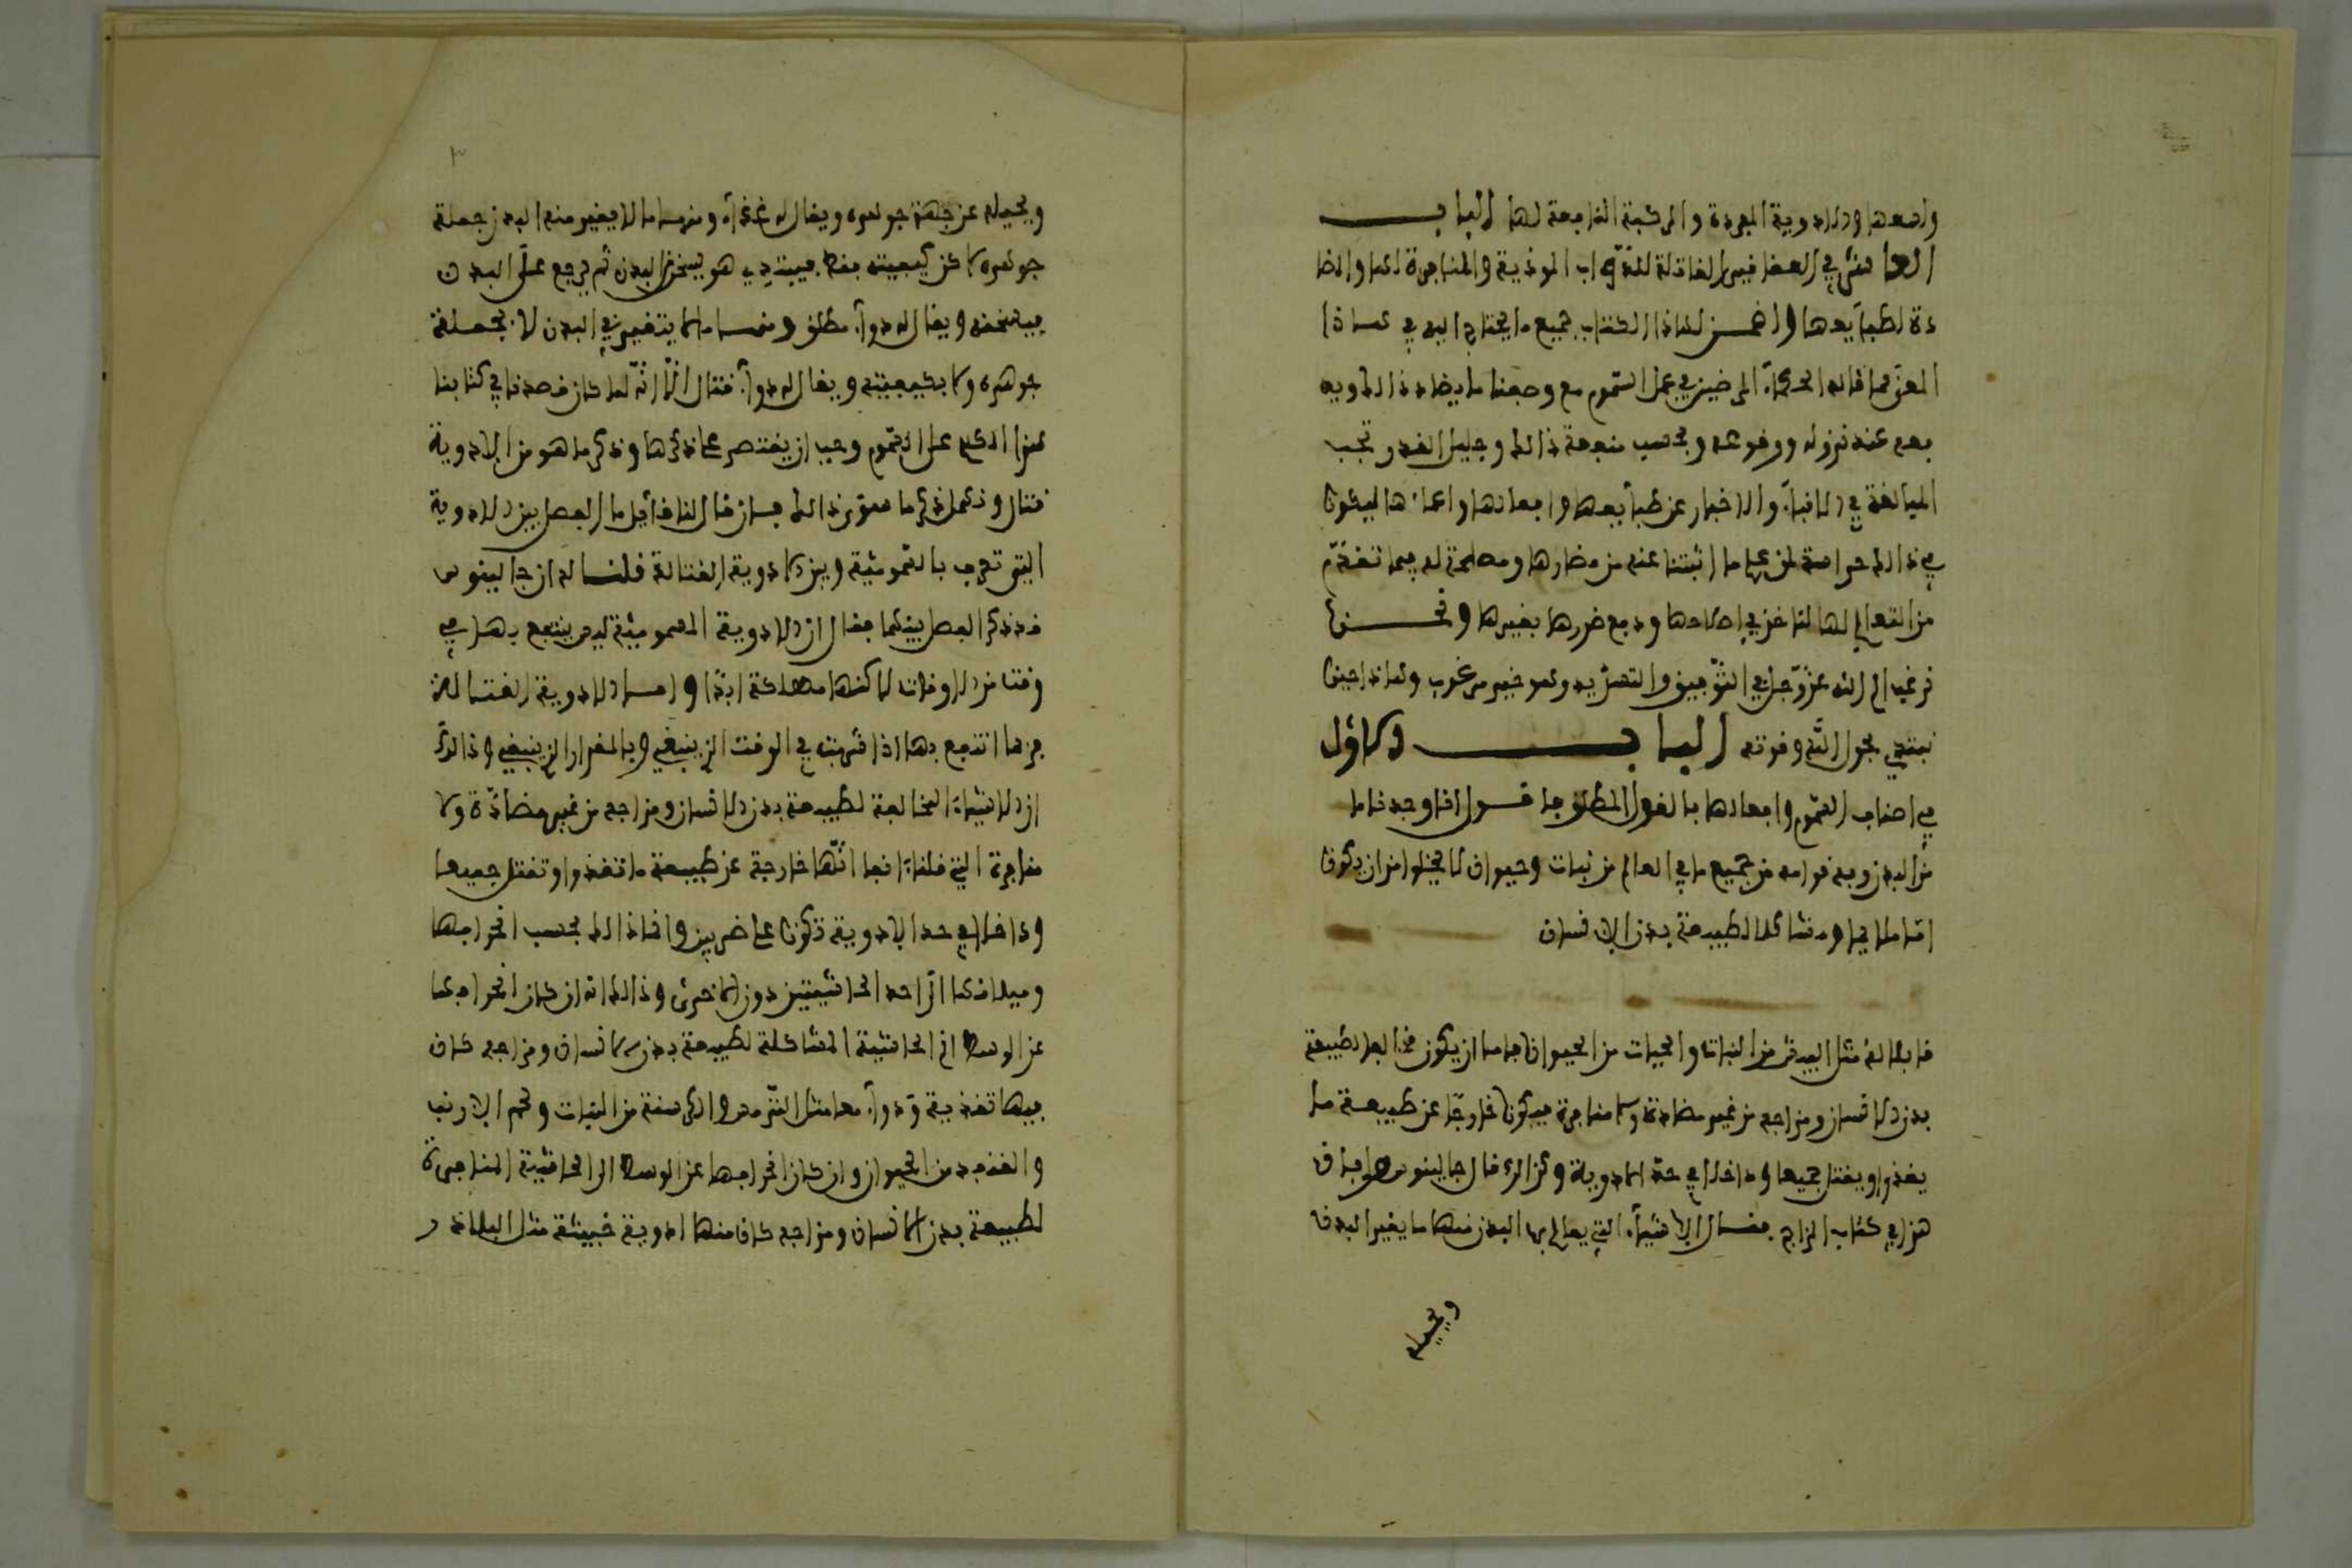 والادوية المفردة والمركبة النافعة لها الباب
العاشر في العقاقير القاتلة للدواب الموذية والمنافرة لها والمضا
دة لطبآيعها جميع ما يحتاج اليه في هاذا
المعنى مما قاله الحكمآء الماضين في عمل السموم مع وصفنا ما يضاد ذالك ويد
فعه عند نزوله ووقوعه وبحسب منفعة ذالك وجليل القدر تجب
المبالغة في الانبآء والاخبار عن طبآيعها وافعالها ليكون
في ذالك حراسة لمن ما اثبتنا عنه من مضارها ومصلحة له فيما تقدم
من التعالج لها لناخذ في اصلاحها ودفع ضررها بغيرها ونحن
نرغب الى الله عز وجل في التوفيق والتسديد وهو خير مرغوب وهاذا حين
نبتدي بحول الله وقوته الباب الاول
في اصناف السموم وافعالها بالقول المطلق جالينوس انا وجدنا ما
من البدن وبه قوامه من جميع ما في العالم من نبات وحيوان لا يخلوا من ان يكون
امّا ملايما ومشاكلا لطبيعة بدن الانسان
قابلا له مثل البيش من النبات والحيات من الحيوان فاما ان يكون مخالفا لطبيعة
بدن الانسان ومزاجه من غير مضادة ولا منافرة فيكون خارجا عن طبيعة ما
يغذوا ويقتل جميعا وداخلا في حد الادوية وكذالك قال جالينوس
هذا في كتاب المزاج فقال الاشيآء التي يعالج بها البدن منها ما يغير البدن
ويحيله
٣
ويحيله عن جهة جوهره ويقال له غذآء ومنها ما لا يغير منه البدن جملة
جوهره لاكن كيفيته فقط فيبتدي هو يسخن البدن ثم يرجع على البدن
فيسخنه ويقال له دوآء مطلق ومنها ما لا يتغير في البدن لا بجملة
جوهره ولا بكيفيته ويقال له دوآء قتال الّا انّه لما كان قصدنا في كتابنا
هذا الكلام على السموم وجب ان يقتصر على ذكرها وذكر ما هو من الادوية
قتال وذكر ما سوى ذالك فان قال لنا قآيل ما الفصل بين الادوية
التي تعرف بالسمومية وبين الادوية القتالة قلنا له ان جالينوس
قد ذكر الفصل بينهما فقال ان الادوية السمومية ليس ينتفع بها في
وقت من الاوقات لاكنها مهلكة ابدا واما الادوية القتالة
فربما انتفع بها اذا شربت في الوقت الذي ينبغي وبالمقدار الذي ينبغي وذالك
ان الاشيآء المخالفة لطبيعة بدن الانسان ومزاجه من غير مضادّة ولا
منافرة التي قلنا انفا انّها خارجة عن طبيعة ما تغذوا وتقتل جميعا
وداخلا في حد الادوية تكون على ضربين وانا ذالك بحسب انحرافها
وميلانها الى احد الحاشيتين دون الاخرى وذالك انه ان كان انحرافها
عن الوسط الى الحاشية المشاكلة لطبيعة بدن الانسان ومزاجه كان
فيها تغذية ودوآء معا مثل الترمس والكرسنة من النبات ولحم الارنب
والقنفد من الحيوان وان كان انحرافها عن الوسط الى الحاشية المنافرة
لطبيعة بدن الانسان ومزاجه كان منها ادوية خبيثة مثل البلاذر